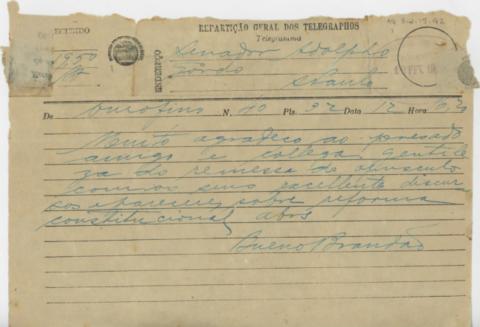 AG 3.2.15.92
REPARTIÇÃO GERAL DOS TELEGRAPHOS
Telegramma
ENDEREÇO
Senador Adolpho
Gordo
S Paulo
1950
FEV 19
De Ourofino N. 40 Pls. 32 Data 12 Hora
Muito agradeço ao presado
amigo e collega gentile
za do remessa do opusculo
com os seus excellente discur
sos e parecer sobre reforma
constitucional abrs
Bueno Brandão